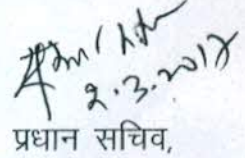 2.3.2017
प्रधान सचिव,